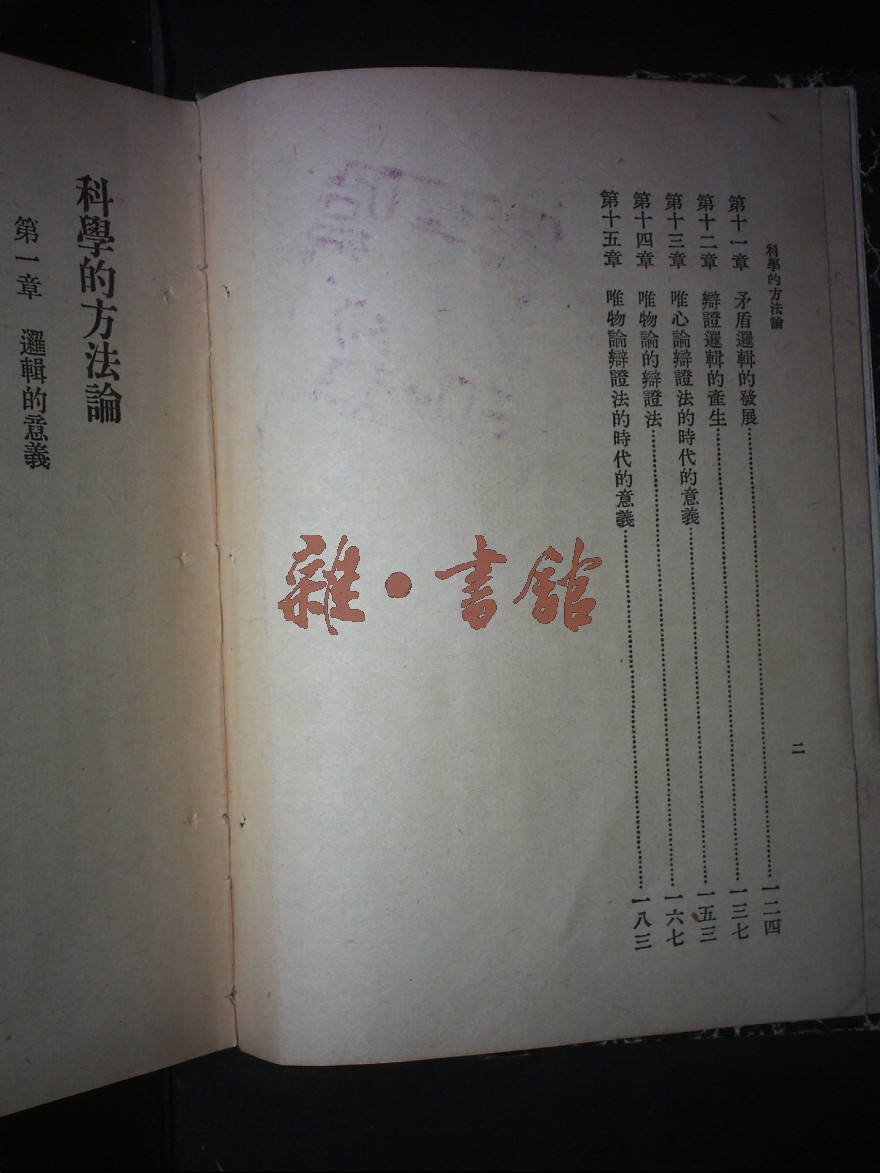 科學的方法論
二
第十一章 矛盾邏輯的發展……一二四
第十二章 辯證邏輯的產生……一三七
第十三章 唯心論辯證法的時代的意義……一五三
第十四章 唯物論的辯證法……一六七
第十五章 唯物論辯證法的時代的意義……一八三
雜·書館
科學的方法論
第一章 邏輯的意義